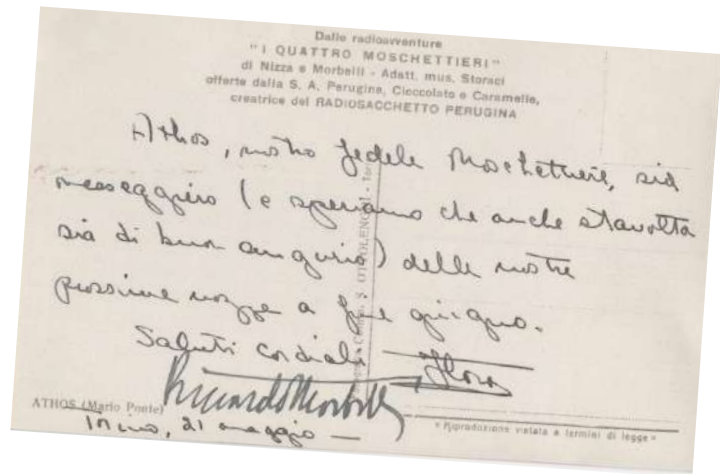 Dalle radioavventure
"I QUATTRO MOSCHETTIERI"
di Nizza e Morbelli - Adatt. mus. Storaci
offerte dalla S. A. Perugina, Cioccolato e Caramelle,
creatrice del RADIOSACCHETTO PERUGINA
Athos, nostro fedele Moschettiere, sia
messaggero (e speriamo che anche stavolta
sia di buon augurio) delle nostre
prossime nozze a fine giugno.
Saluti cordiali
Riccardo Morbelli
ATHOS (Mario Ponte)
Torino, 21 maggio —
S. OTTOLENGHI - Tor
"Riproduzione vietata a termini di legge"